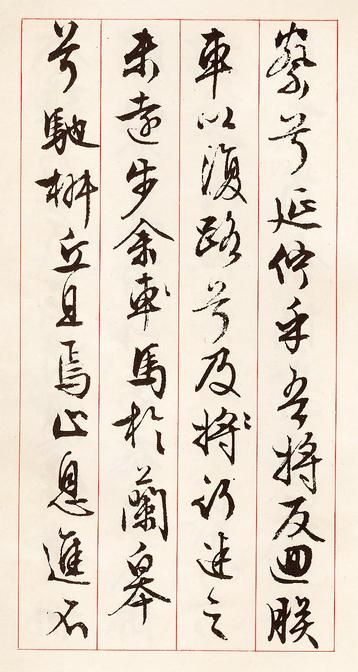 察兮延佇乎吾將反迴朕
車以復路兮及將行迷之
未遠步余車馬於蘭皋
兮馳椒丘且焉止息進不